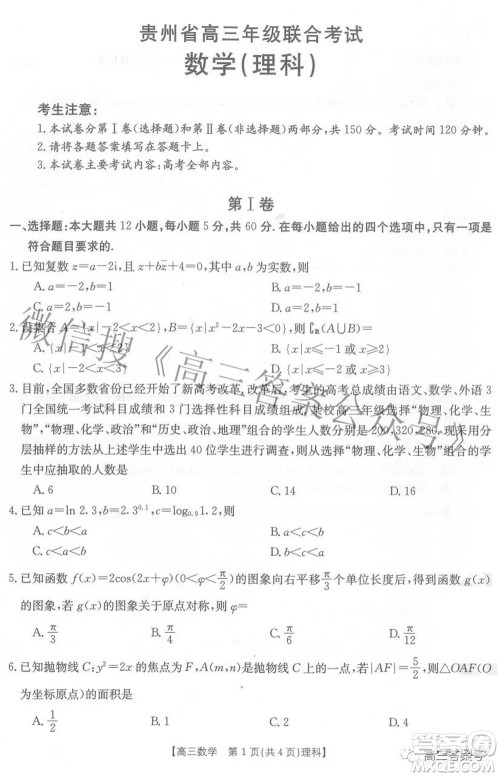 贵州省高三年级联合考试
数学(理科)
考生注意:
1.本试卷分第Ⅰ卷(选择题)和第Ⅱ卷(非选择题)两部分,共 150 分。考试时间 120 分钟。
2.请将各题答案填写在答题卡上。
3.本试卷主要考试内容:高考全部内容。
第Ⅰ卷
一、选择题:本大题共 12 小题,每小题 5 分,共 60 分.在每小题给出的四个选项中,只有一项是
符合题目要求的.
1.已知复数 z=a−2i,且 z+bz̄+4=0,其中 a,b 为实数,则
A.a=−2,b=1 B.a=−2,b=−1
C.a=2,b=1 D.a=2,b=−1
2.设集合 A={x|−2<x<2},B={x|x²−2x−3≤0},则∁R(A∪B)=
A.{x|
B.{x|x≤−1 或 x≥2}
C.{x|
D.{x|x≤−2 或 x>3}
3.目前,全国多数省份已经开始了新高考改革,改革后,考生的高考总成绩由语文、数学、外语 3
门全国统一考试科目成绩和 3 门选择性科目成绩组成.已知某校高三年级选择“物理、化学、生
物”,“物理、化学、政治”和“历史、政治、地理”组合的学生人数分别是 200,320,280,现采用分
层抽样的方法从上述学生中选出 40 位学生进行调查,则从“物理、化学、生物”组合的学生中
应抽取的人数是
A.6 B.10 C.14 D.16
4.已知 a=ln 2.3,b=2.3⁰·¹,c=log₀.₉1.2,则
A.c<b<a B.c<a<b
C.b<c<a D.a<c<b
5.已知函数 f(x)=2cos(2x+φ)(0<φ<π/2)的图象向右平移π/3个单位长度后,得到函数 g(x)
的图象,若 g(x)的图象关于原点对称,则 φ=
A.π/3 B.π/4 C.π/6 D.π/12
6.已知抛物线 C:y²=2x 的焦点为 F,A(m,n)是抛物线 C 上的一点,若|AF|=5/2,则△OAF(O
为坐标原点)的面积是
A.1/2 B.1 C.2 D.4
【高三数学 第 1 页(共 4 页)理科】
微信搜《高三答案公众号》
高三答案号